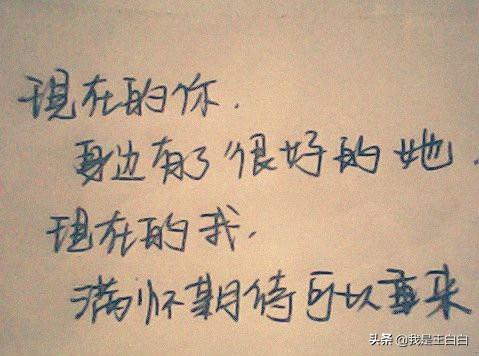 现在的你.
身边有了很好的她.
现在的我.
满怀期待可以重来
头条 @我是王白白